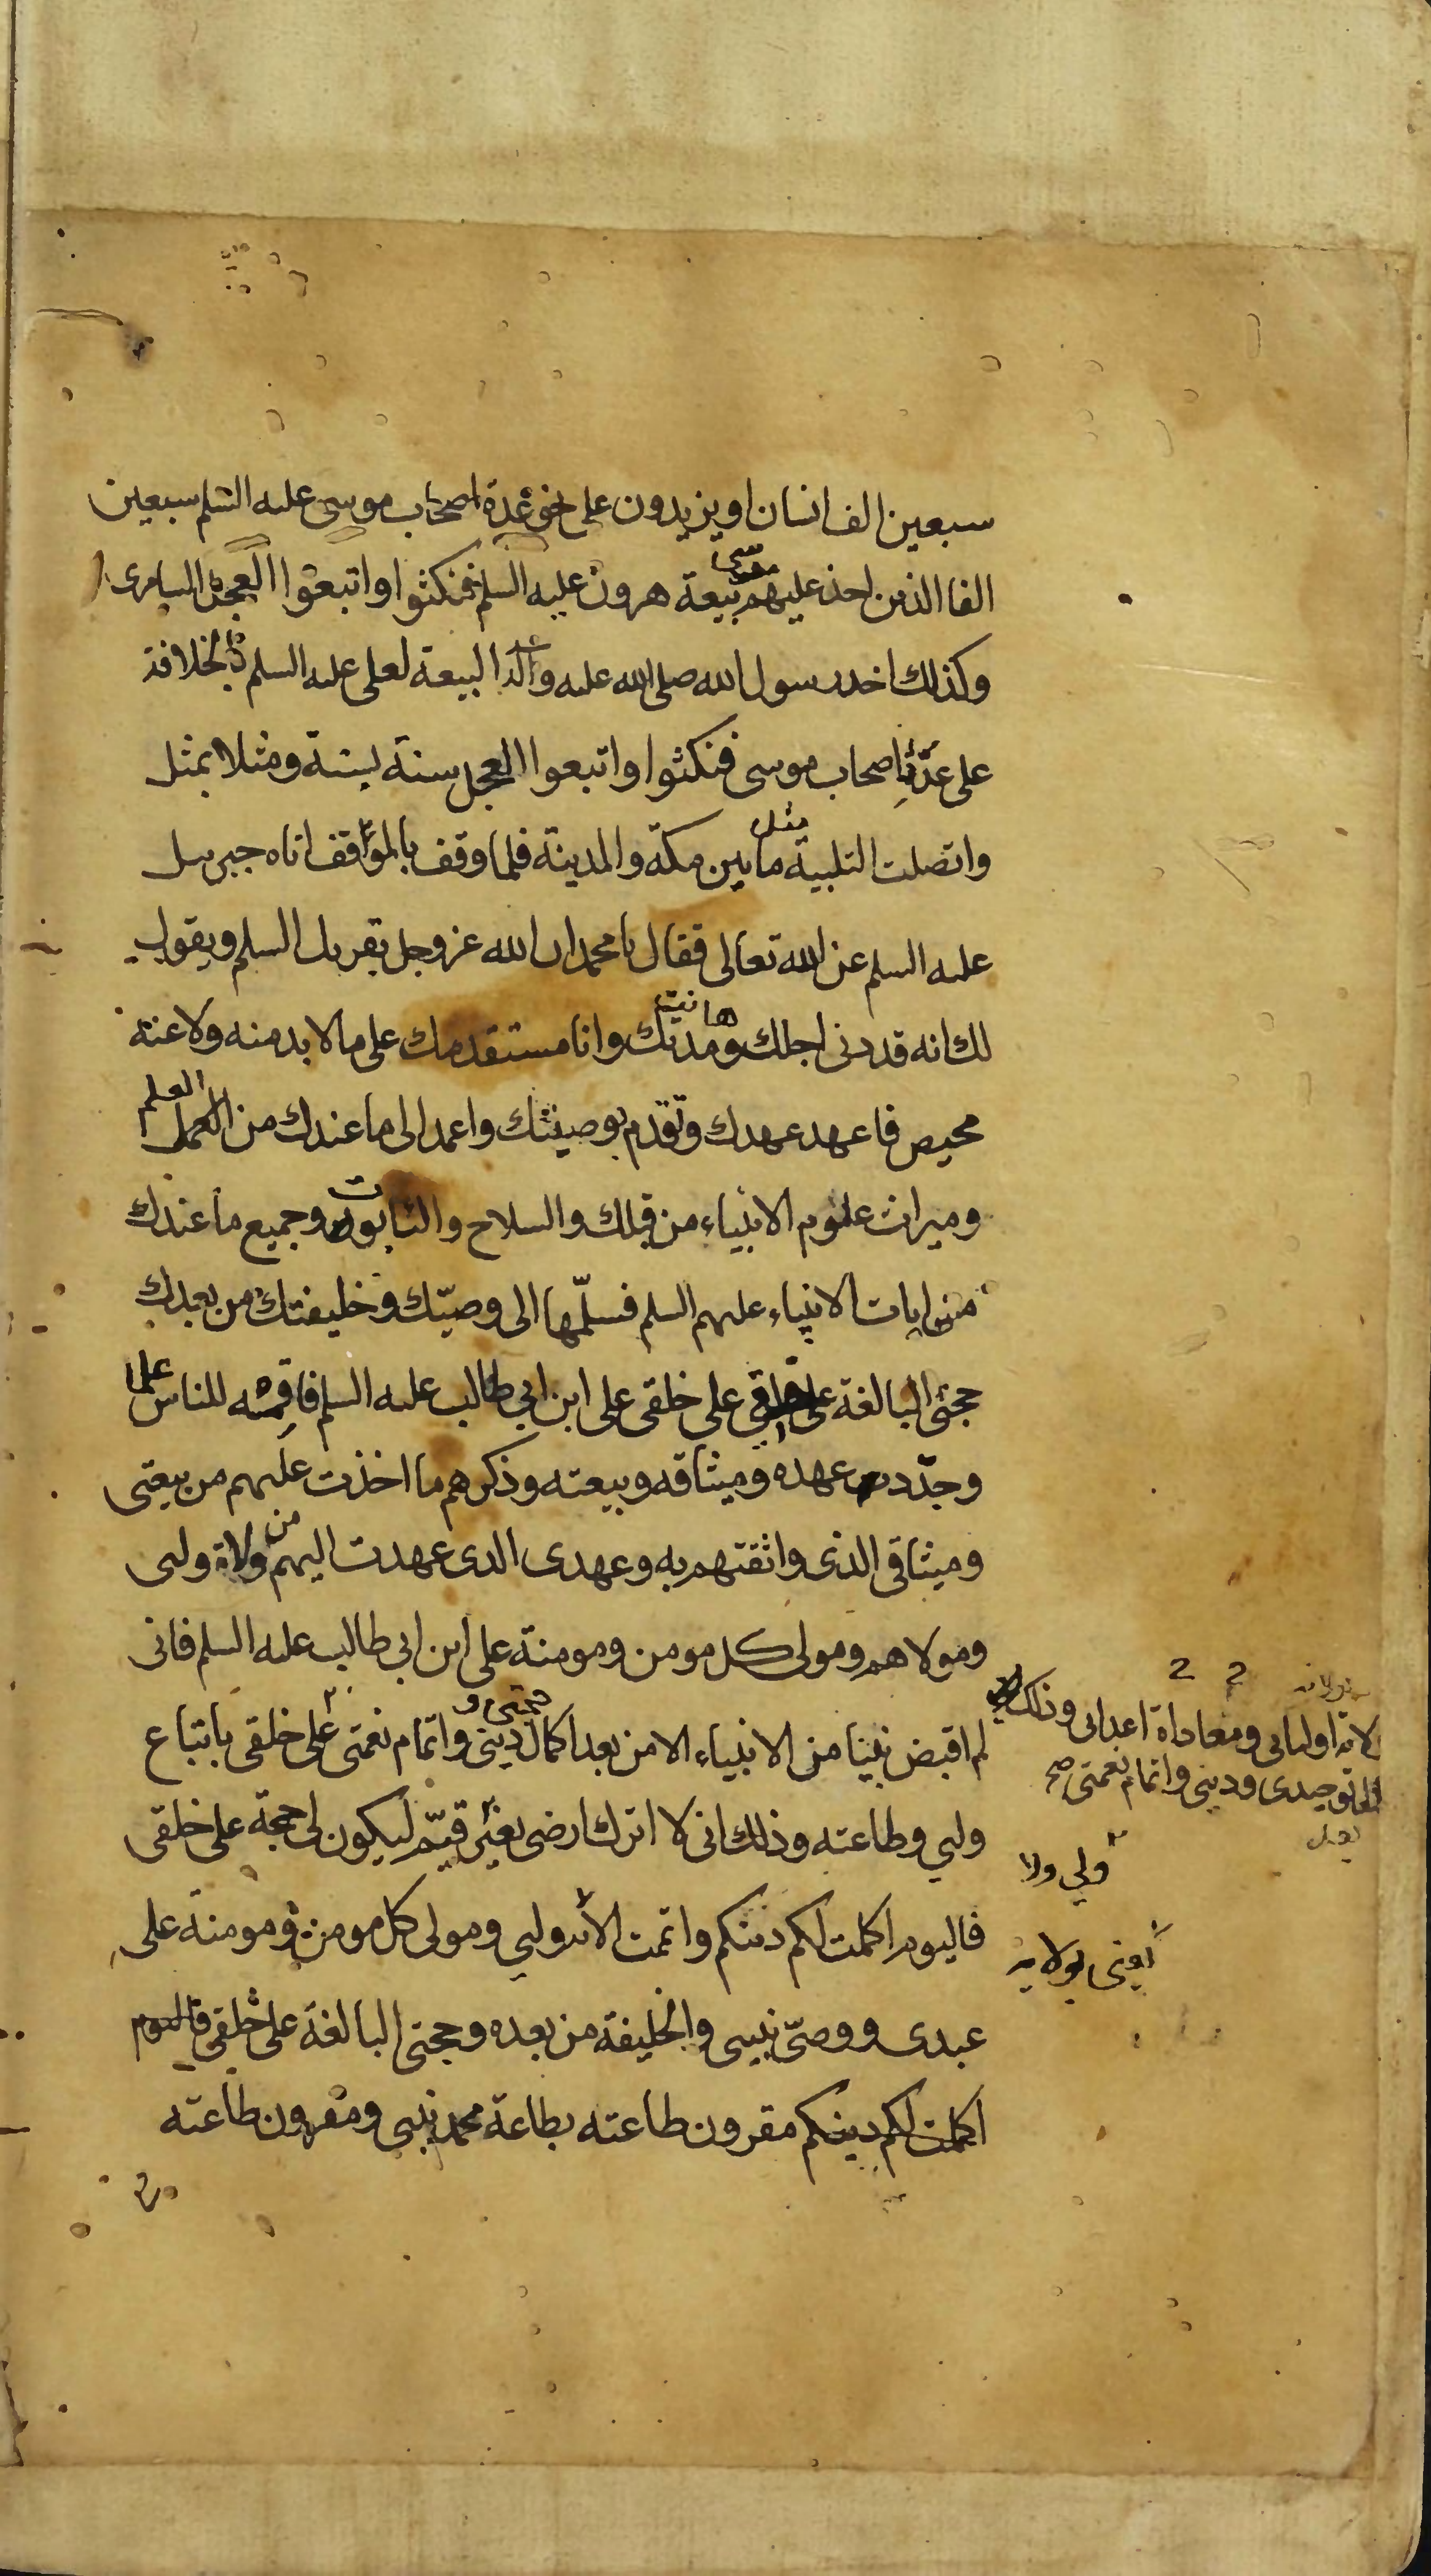 سبعين الف انسان او يزيدون على نحو عدة اصحاب موسى عليه السلم سبعين
الفا الذين اخذ عليهم موسى بيعة هرون عليه السلم فنكثوا واتبعوا العجل السامرى
وكذلك اخد رسول الله صلى الله عليه وآله البيعة لعلى عليه السلم بالخلافة
على عدّة اصحاب موسى فنكثوا واتبعوا العجل سنة بسنة ومثلا بمثل
واتصلت التلبية ما بين مكة والمدينة فلما وقف بالمواقف اتاه جبرييل
عليه السلم عن الله تعالى فقال يا محمد ان الله عز وجل يقريك السلم ويقول
لك انه قد دنى اجلك ومدتك وانا مستقدمك على ما لا بد منه ولا عنه
محيص فاعهد عهدك وتقدم بوصيتك واعمد الى ما عندك من العلم
وميراث علوم الانبياء من قبلك والسلاح والتابوت وجميع ما عندك
من ايات الانبياء عليهم السلم فسلّمها الى وصيّك وخليفتك من بعدك
حجتى البالغة على خلقى على ابن ابي طالب عليه السلم فاقمه للناس علما
وجدّد عهده وميثاقه وبيعته وذكرهم ما اخذت عليهم من بيعتى
وميثاقى الذى واثقتهم به وعهدى الدى عهدت اليهم من ولاة وليى
ومولاهم ومولى كل مومن ومومنة على ابن ابى طالب عليه السلم فانى
لم اقبض نبيّا من الانبياء الا من بعد اكمال دينى واتمام نعمتى على خلقى باتباع
وليي وطاعته وذلك انى لا اترك ارضى بغير قيّم ليكون لى حجة على خلقى
فاليوم اكملت لكم دينكم واتممت الآية وليي ومولى كل مومن ومومنة على
عبدى ووصىّ نبيى والخليفة من بعده وحجتى البالغة على خلقى فاليوم
اكملت لكم دينكم مقرون طاعته بطاعة محمد نبيى ومقرون طاعته
لاية اوليايى ومعاداة اعدايى وذلك
توحيدى ودينى واتمام نعمتى صح
ولي ولا